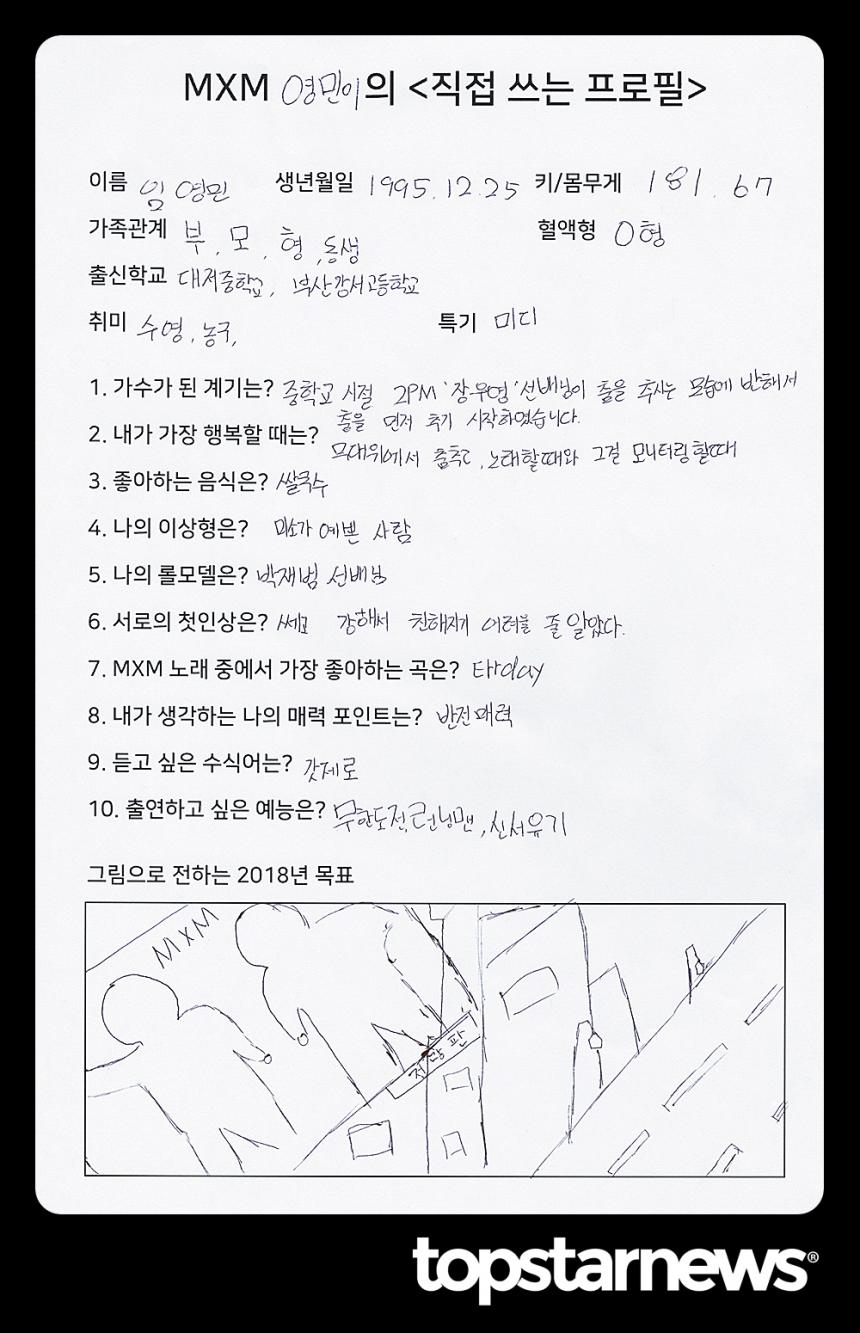 MXM 영민이의 <직접 쓰는 프로필>
이름 임영민 생년월일 1995.12.25 키/몸무게 181. 67
가족관계 부, 모, 형, 동생 혈액형 O형
출신학교 대저중학교, 부산강서고등학교
취미 수영, 농구, 특기 미디
1. 가수가 된 계기는? 중학교 시절 2PM '장우영' 선배님이 춤을 추시는 모습에 반해서
춤을 먼저 추기 시작하였습니다.
2. 내가 가장 행복할 때는? 무대위에서 춤추고, 노래할때와 그걸 모니터링할때
3. 좋아하는 음식은? 쌀국수
4. 나의 이상형은? 미소가 예쁜 사람
5. 나의 롤모델은? 박재범 선배님
6. 서로의 첫인상은? 쎄고 강해서 친해지기 어려울 줄 알았다.
7. MXM 노래 중에서 가장 좋아하는 곡은?
8. 내가 생각하는 나의 매력 포인트는? 반전매력
9. 듣고 싶은 수식어는? 갓제로
10. 출연하고 싶은 예능은? 무한도전, 런닝맨, 신서유기
그림으로 전하는 2018년 목표
MXM
전광판
topstarnews®